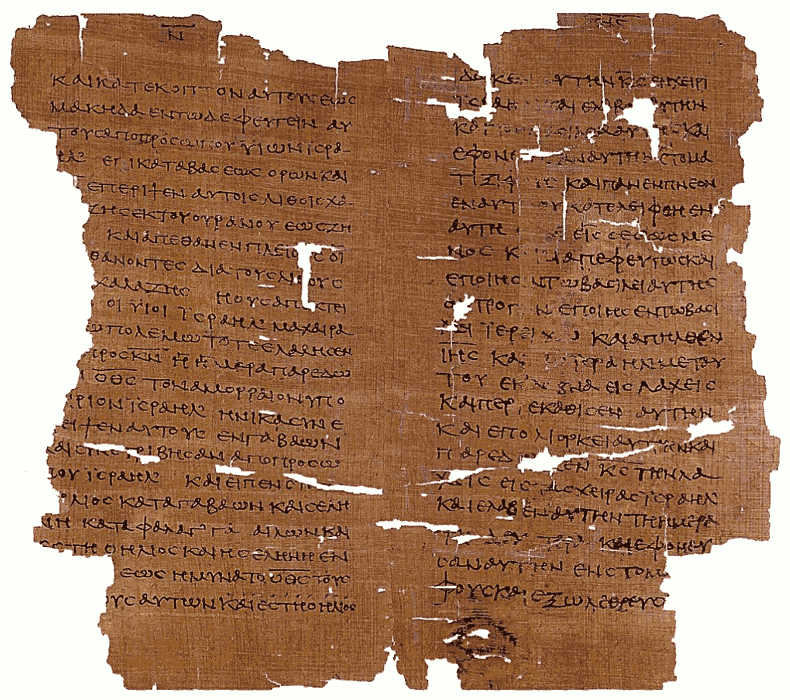 Ν
ΚΑΙΚΑΤΕΚΟΠΤΟΝΑΥΤΟΥϹΕΩϹ
ΜΑΚΗΔΑΕΝΤΩΔΕΦΕΥΓΕΙΝΑΥ
ΤΟΥϹΑΠΟΠΡΟϹΩΠΟΥΥΙΩΝΙϹΡΑ
ΕΠΙΚΑΤΑΒΑϹΕΩϹΟΡΩΝΚΑΙ
ΕΠΕΡΙΨΕΝΑΥΤΟΙϹΛΙΘΟΙϹΧΑ
ΖΗϹΕΚΤΟΥΟΥΡΑΝΟΥΕΩϹΖΗ
ΚΑΙΑΠΕΘΑΝΕΝΠΛΕΙΟΥϹΟΙ
ΘΑΝΟΝΤΕϹΔΙΑΤΟΥϹΛΙΘΟΥϹ
ΧΑΛΑΖΗϹ ΗΟΥϹΑΠΕΚΤΕΙ
ΟΙΥΙΟΙ ΙϹΡΑΗΛ ΜΑΧΑΙΡΑ
ΩΠΟΛΕΜΩΤΟΤΕΕΛΑΛΗϹΕΝ
ΠΡΟϹΚΝ ΗΗΜΕΡΑΠΑΡΕΔΩ
ΟΘϹ ΤΟΝΑΜΟΡΡΑΙΟΝΥΠΟ
ΑΡΙΟΝΙϹΡΑΗΛ ΗΝΙΚΑϹΥΝΕ
ΕΙΨΕΝΑΥΤΟΥϹ ΕΝΓΑΒΑΩΝΙ
ΑΙϹΥΝΕΤΡΙΒΗϹΑΝΑΠΟΠΡΟϹΩ
ΙΟΥΙϹΡΑΗΛ ΚΑΙΕΙΠΕΝ
ΛΙΟϹ ΚΑΤΑΓΑΒΑΩΝ ΚΑΙϹΕΛΗ
ΝΗ ΚΑΤΑΦΑΡΑΓΓΑ ΑΙΛΩΝΚΑΙ
ΕϹΤΗΟΗΛΙΟϹΚΑΙΗϹΕΛΗΝΗΕΝ
ΕΩϹΗΜΥΝΑΤΟΟΘϹΤΟΥϹ
ΥϹΑΥΤΩΝΚΑΙΕϹΤΗΟΗΛΙΟϹ
ΑΥΤΗΝΚϹΕΝΧΕΙΡΙ
ΕΛΑΒΟΝΑΥΤΗΝ
ΕΦΟΝΕΥϹΑΝΑΥΤΗΝΕΝϹΤΟΜΑ
ΤΙΞΙΦΟΥϹ ΚΑΙΠΑΝΕΝΠΝΕΟΝ
ΕΝΑΥΤΗ ΟΥΚΑΤΕΛΕΙΦΘΗΕΝ
ΑΥΤΗ ΕΙϹ ΔΙΑϹΕϹΩϹΜΕ
ΝΟϹ ΚΑΙΔΙΑΠΕΦΕΥΓΩϹΚΑΙ
ΕΠΟΙΗϹΑΝΤΩΒΑϹΙΛΕΙΑΥΤΗϹ
ΟΝΤΡΟΠΟΝ ΕΠΟΙΗϹΕΝΤΩΒΑϹΙ
ΛΕΙ ΙΕΡΕΙΧΩ ΚΑΙΑΠΗΛΘΕΝ
ΙΗϹ ΚΑΙ ΙϹΡΑΗΛΜΕΤΟΥ
ΤΟΥ ΕΚ ΛΕΒΝΑ ΕΙϹ ΛΑΧΕΙϹ
ΚΑΙΠΕΡΙΕΚΑΘΙϹΕΝ ΑΥΤΗΝ
ΚΑΙΕΠΟΛΙΟΡΚΕΙΑΥΤΗΝΚΑΙ
ΠΑΡΕΔΩΚΕΝ ΚϹ ΤΗΝΛΑ
ΧΕΙϹ ΕΙϹΤΑϹΧΕΙΡΑϹΙϹΡΑΗΛ
ΚΑΙΕΛΑΒΕΝΑΥΤΗΝΤΗΗΜΕΡΑ
ΚΑΙΕΦΟΝΕΥ
ϹΑΝΑΥΤΗΝ ΕΝϹΤΟΜ
ΦΟΥϹΚΑΙΕΞΩΛΕΘΡΕΥϹ